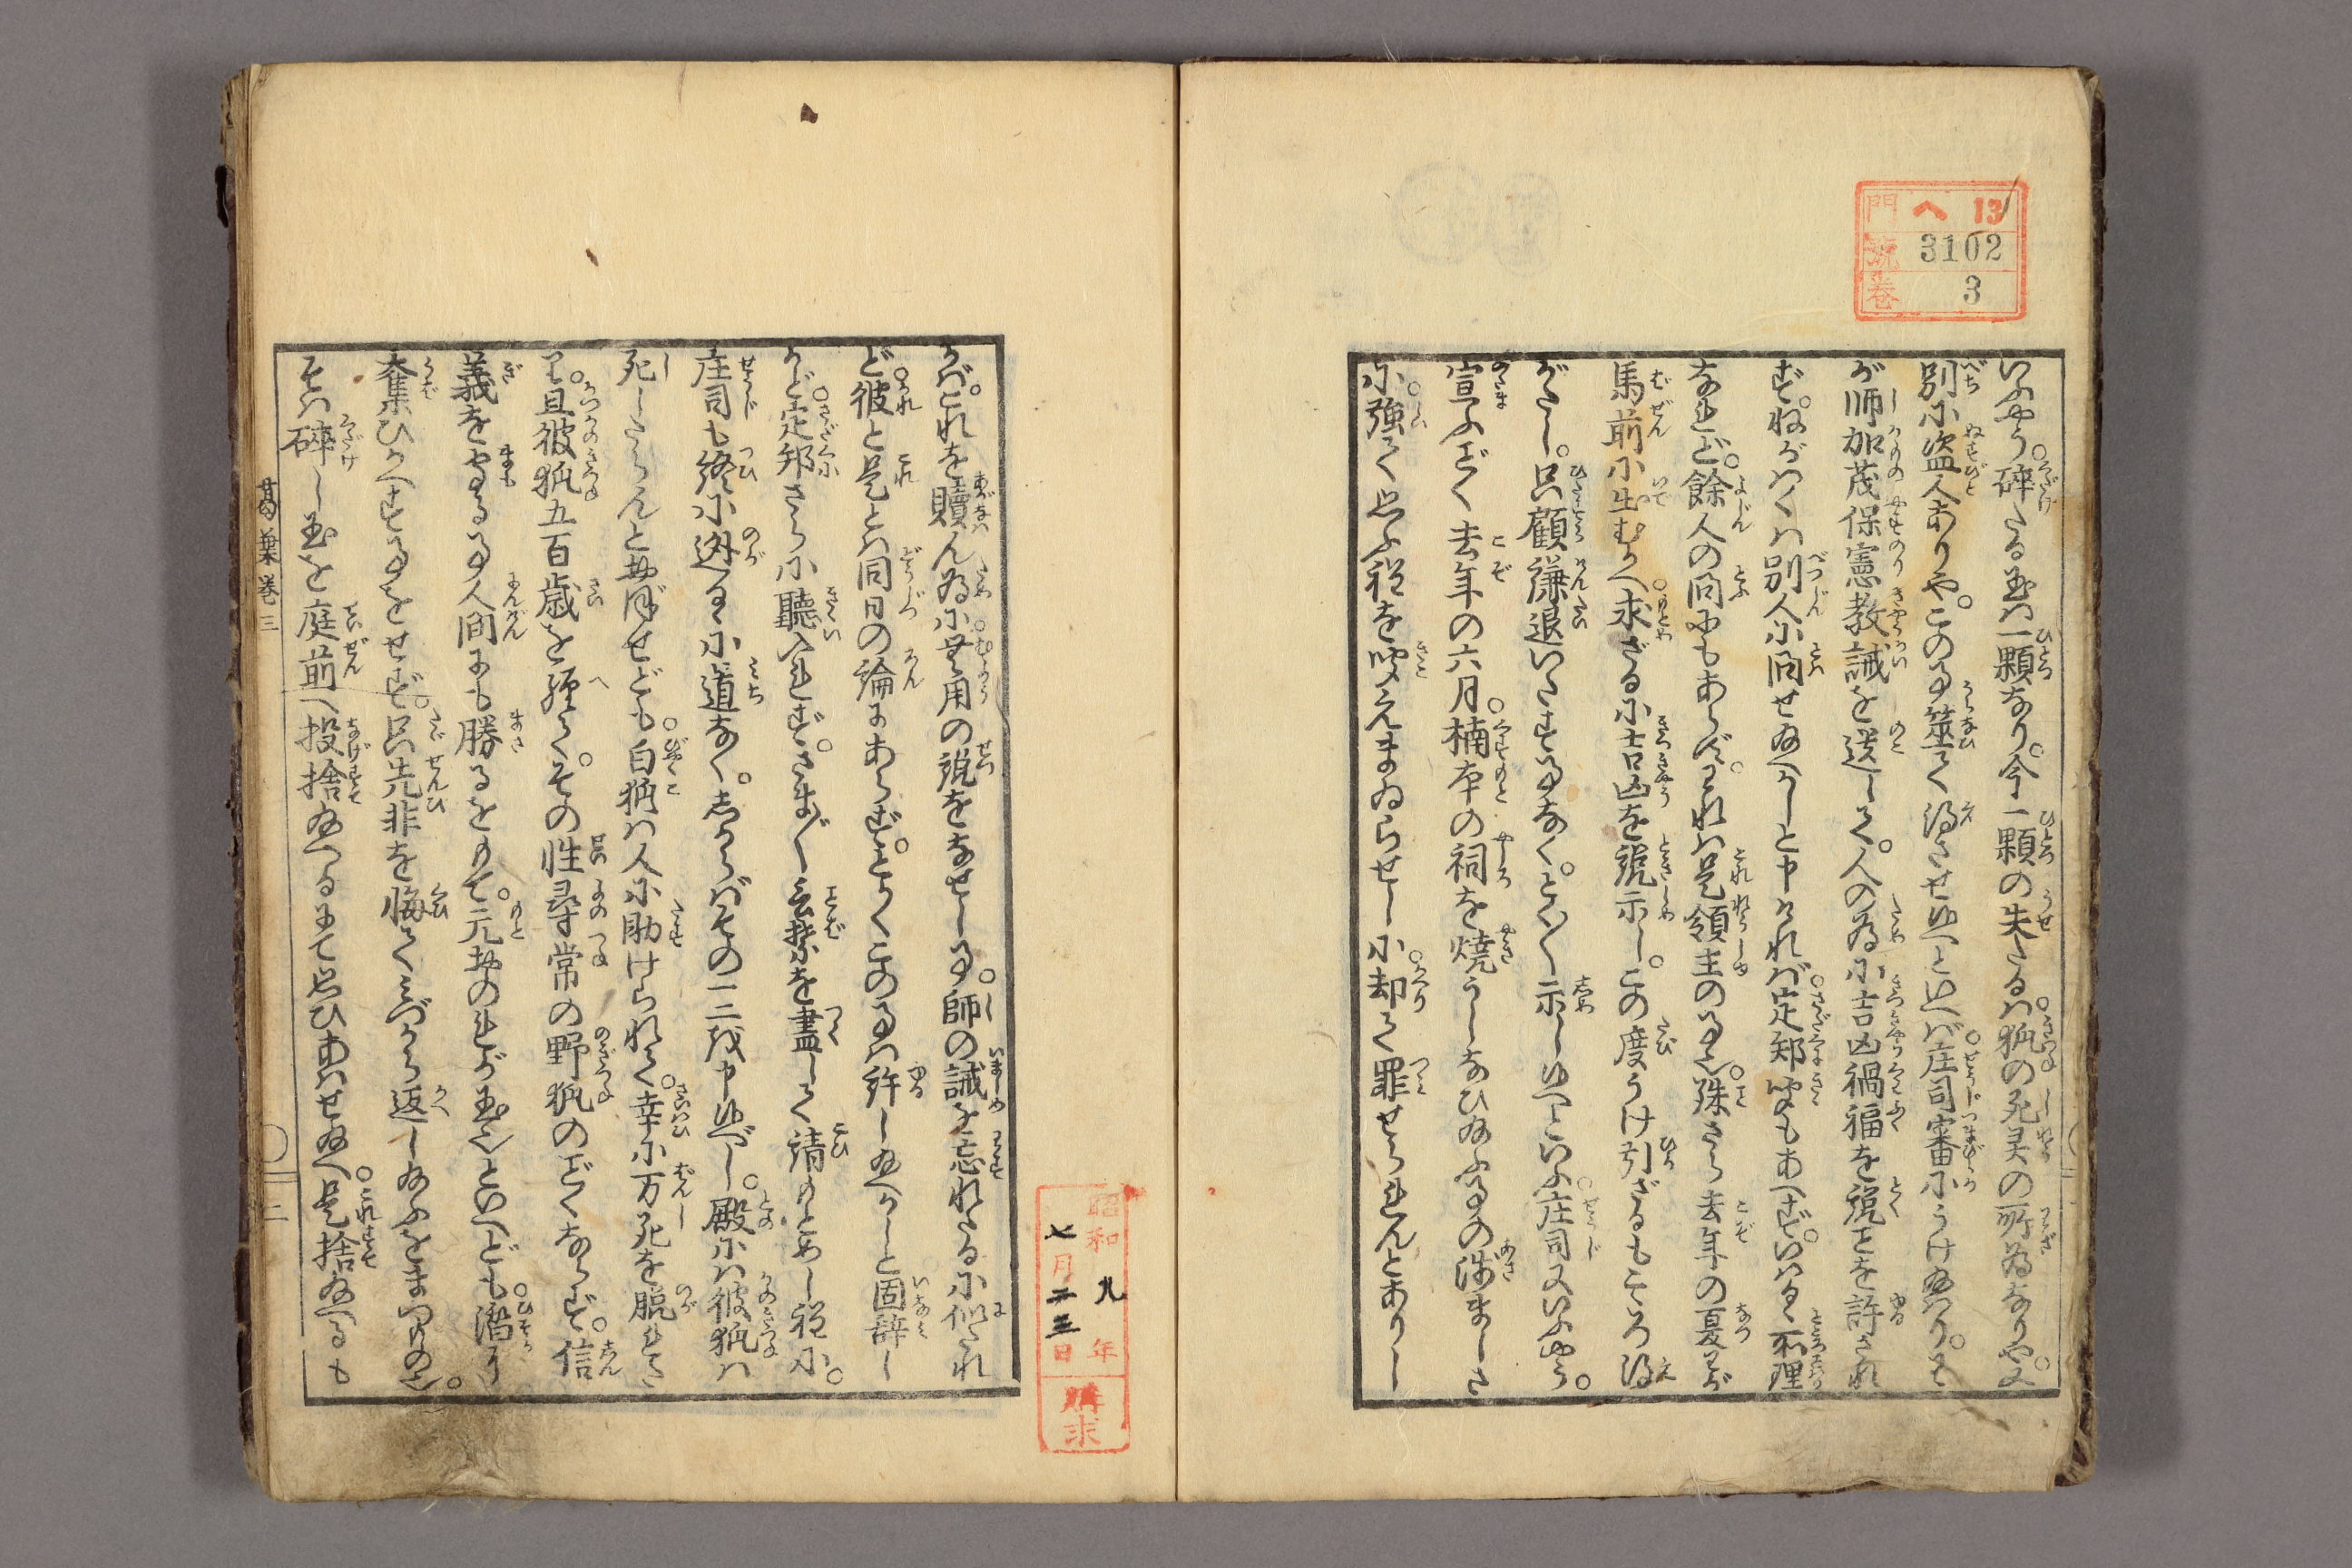 門 へ 13
號 3102
巻 3
いふやう。碎たる玉は一顆なり。今一顆の失たるは。狐の死灵の所為なりや。又
別に盗人ありや。この事筮て得させ給へといへば。庄司審にうけ給はりぬ。
が師加茂保憲教誡を送して。人の為に吉凶禍福を説ことを許され
ず。ねがはくは別人に問せ給へかしと申ければ。定邦聞もあへず。いはるゝ所理
なれど。餘人の問にもあらず。われは是領主の事也。殊さら去年の夏わが
馬前に出むかへ。求ざるに吉凶を説示し。この度うけ引ざるもこゝろ得
がたし。只顧謙退いたす事なく。とく〳〵示し給へといふ。庄司又いふやう。
宣ふごとく去年の六月。楠本の祠を燒うしなひ給ふ事の淺ましさ
に。強て思ふ程を聞えまゐらせしに。却て罪せられんとありし
かば。これを贖ん為に。無用の説をなせし事。師の誡を忘れたるに似たれ
ど。彼と是とは同日の論にあらず。とかくこの事は許し給へかしと固辞し
かど。定邦さらに聽入れず。さま〴〵言葉を盡して請もとめし程に。
庄司も終に迯るゝに道なく。しからばその一二を申べし。殿には彼狐は
死したらんと思ぼせども。白狐は人に助けられて。幸に万死を脱れたり
。且彼狐五百歳を經て。その性尋常の野狐のごとくならず。信
義をまもる事人間にも勝るをもて。元わのれが玉也といへども。潜に
奪ひかへす事をせず。只先非を悔てみづから返し給ふをまつもの也。
そは碎し玉を庭前へ投捨給へるにて思ひあはせ給へ。是捨給へるも
葛葉巻三
三
昭和九年
七月二三日
購求